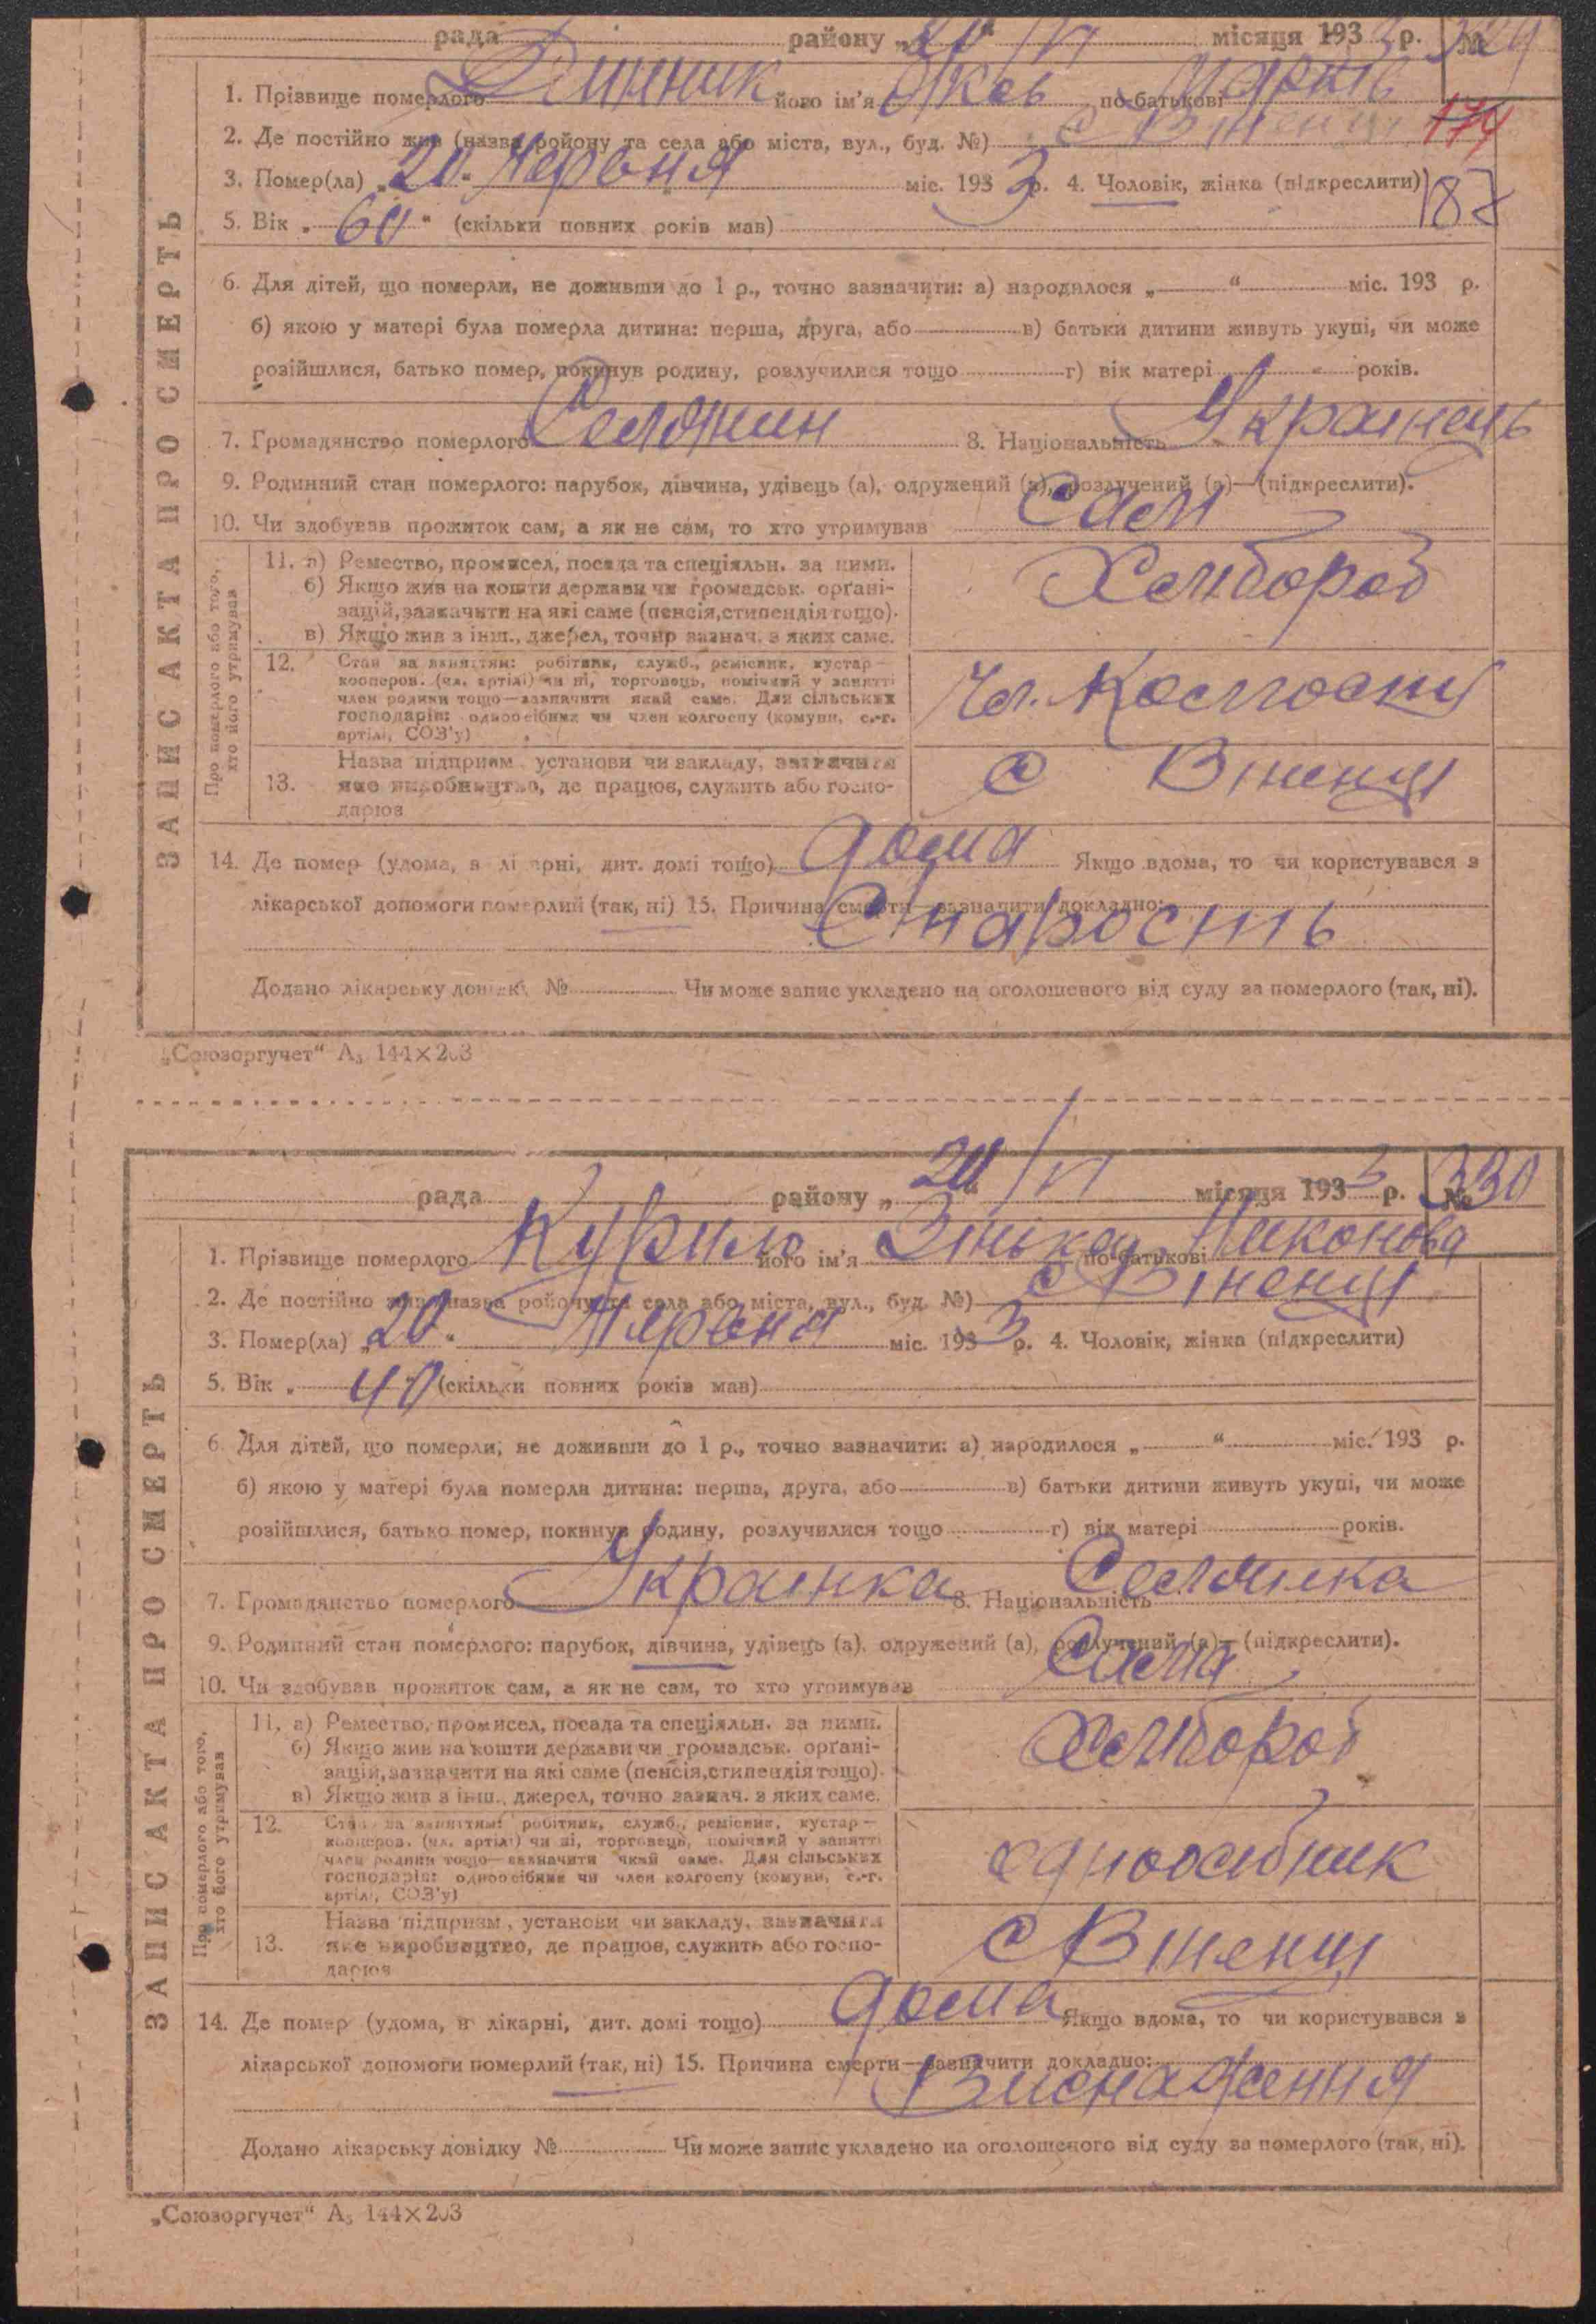 рада району „20“ /VI місяця 1933 р. № 329
1. Прізвище померлого Динник його ім'я Яков по-батькові Марків
2. Де постійно жив (назва ройону та села або міста, вул., буд. №) с Віненці 174
3. Помер(ла) „20. Червня міс. 1933 р. 4. Чоловік, жінка (підкреслити) 187
5. Вік „60“ (скільки повних років мав)
ЗАПИС АКТА ПРО СМЕРТЬ
6. Для дітей, що померли, не доживши до 1 р., точно зазначити: а) народилося „ “ міс. 193 р.
б) якою у матері була померла дитина: перша, друга, або в) батьки дитини живуть укупі, чи може
розійшлися, батько помер, покинув родину, розлучилися тощо г) вік матері років.
7. Громадянство померлого Селянин 8. Національність Украінець
9. Родинний стан померлого: парубок, дівчина, удівець (а), одружений (а), розлучений (а)—(підкреслити).
10. Чи здобував прожиток сам, а як не сам, то хто утримував Сам
Про померлого або того, хто його утримував
11. а) Ремество, промисел, посада та спеціяльн. за ними.
б) Якщо жив на кошти держави чи громадськ. орґані-
зацій, зазначити на які саме (пенсія, стипендія тощо).
в) Якщо жив з інш., джерел, точно зазнач. з яких саме.
Хлибороб
12. Стан за заняттям: робітник, служб., ремісник, кустар—
кооперов. (чл. артілі) чи ні, торговець, помічний у занятті
член родини тощо—зазначити який саме. Для сільських
господарів: одноосібник чи член колгоспу (комуни, с.-г.
артілі, СОЗ'у)
Чл. Колгоспу
13. Назва підприєм. установи чи закладу, зазначити
яке виробництво, де працює, служить або госпо-
дарює
с Віненці
14. Де помер (удома, в лікарні, дит. домі тощо) дома Якщо вдома, то чи користувався з
лікарської допомоги померлий (так, ні) 15. Причина смерти—зазначити докладно:
Старость
Додано лікарську довідку № Чи може запис укладено на оголошеного від суду за померлого (так, ні).
„Союзоргучет“ А₅ 144×203
рада району „20“ /VI місяця 1933 р. № 330
1. Прізвище померлого Курило його ім'я Зінька по-батькові Никонова
2. Де постійно жив (назва ройону та села або міста, вул., буд. №) с Віненці
3. Помер(ла) „20“ Червня міс. 1933 р. 4. Чоловік, жінка (підкреслити)
5. Вік „40 (скільки повних років мав)
ЗАПИС АКТА ПРО СМЕРТЬ
6. Для дітей, що померли, не доживши до 1 р., точно зазначити: а) народилося „ “ міс. 193 р.
б) якою у матері була померла дитина: перша, друга, або в) батьки дитини живуть укупі, чи може
розійшлися, батько помер, покинув родину, розлучилися тощо г) вік матері років.
7. Громадянство померлого Украінка 8. Національність Селянка
9. Родинний стан померлого: парубок, дівчина, удівець (а), одружений (а), розлучений (а)—(підкреслити).
10. Чи здобував прожиток сам, а як не сам, то хто утримував Сама
Про померлого або того, хто його утримував
11. а) Ремество, промисел, посада та спеціяльн. за ними.
б) Якщо жив на кошти держави чи громадськ. орґані-
зацій, зазначити на які саме (пенсія, стипендія тощо).
в) Якщо жив з інш., джерел, точно зазнач. з яких саме.
Хлибороб
12. Стан за заняттям: робітник, служб., ремісник, кустар—
кооперов. (чл. артілі) чи ні, торговець, помічний у занятті
член родини тощо—зазначити який саме. Для сільських
господарів: одноосібник чи член колгоспу (комуни, с.-г.
артілі, СОЗ'у)
одноосибник
13. Назва підприєм., установи чи закладу, зазначити
яке виробництво, де працює, служить або госпо-
дарює
с Віненці
14. Де помер (удома, в лікарні, дит. домі тощо) дома Якщо вдома, то чи користувався з
лікарської допомоги померлий (так, ні) 15. Причина смерти—зазначити докладно:
Виснаження
Додано лікарську довідку № Чи може запис укладено на оголошеного від суду за померлого (так, ні).
„Союзоргучет“ А₅ 144×203